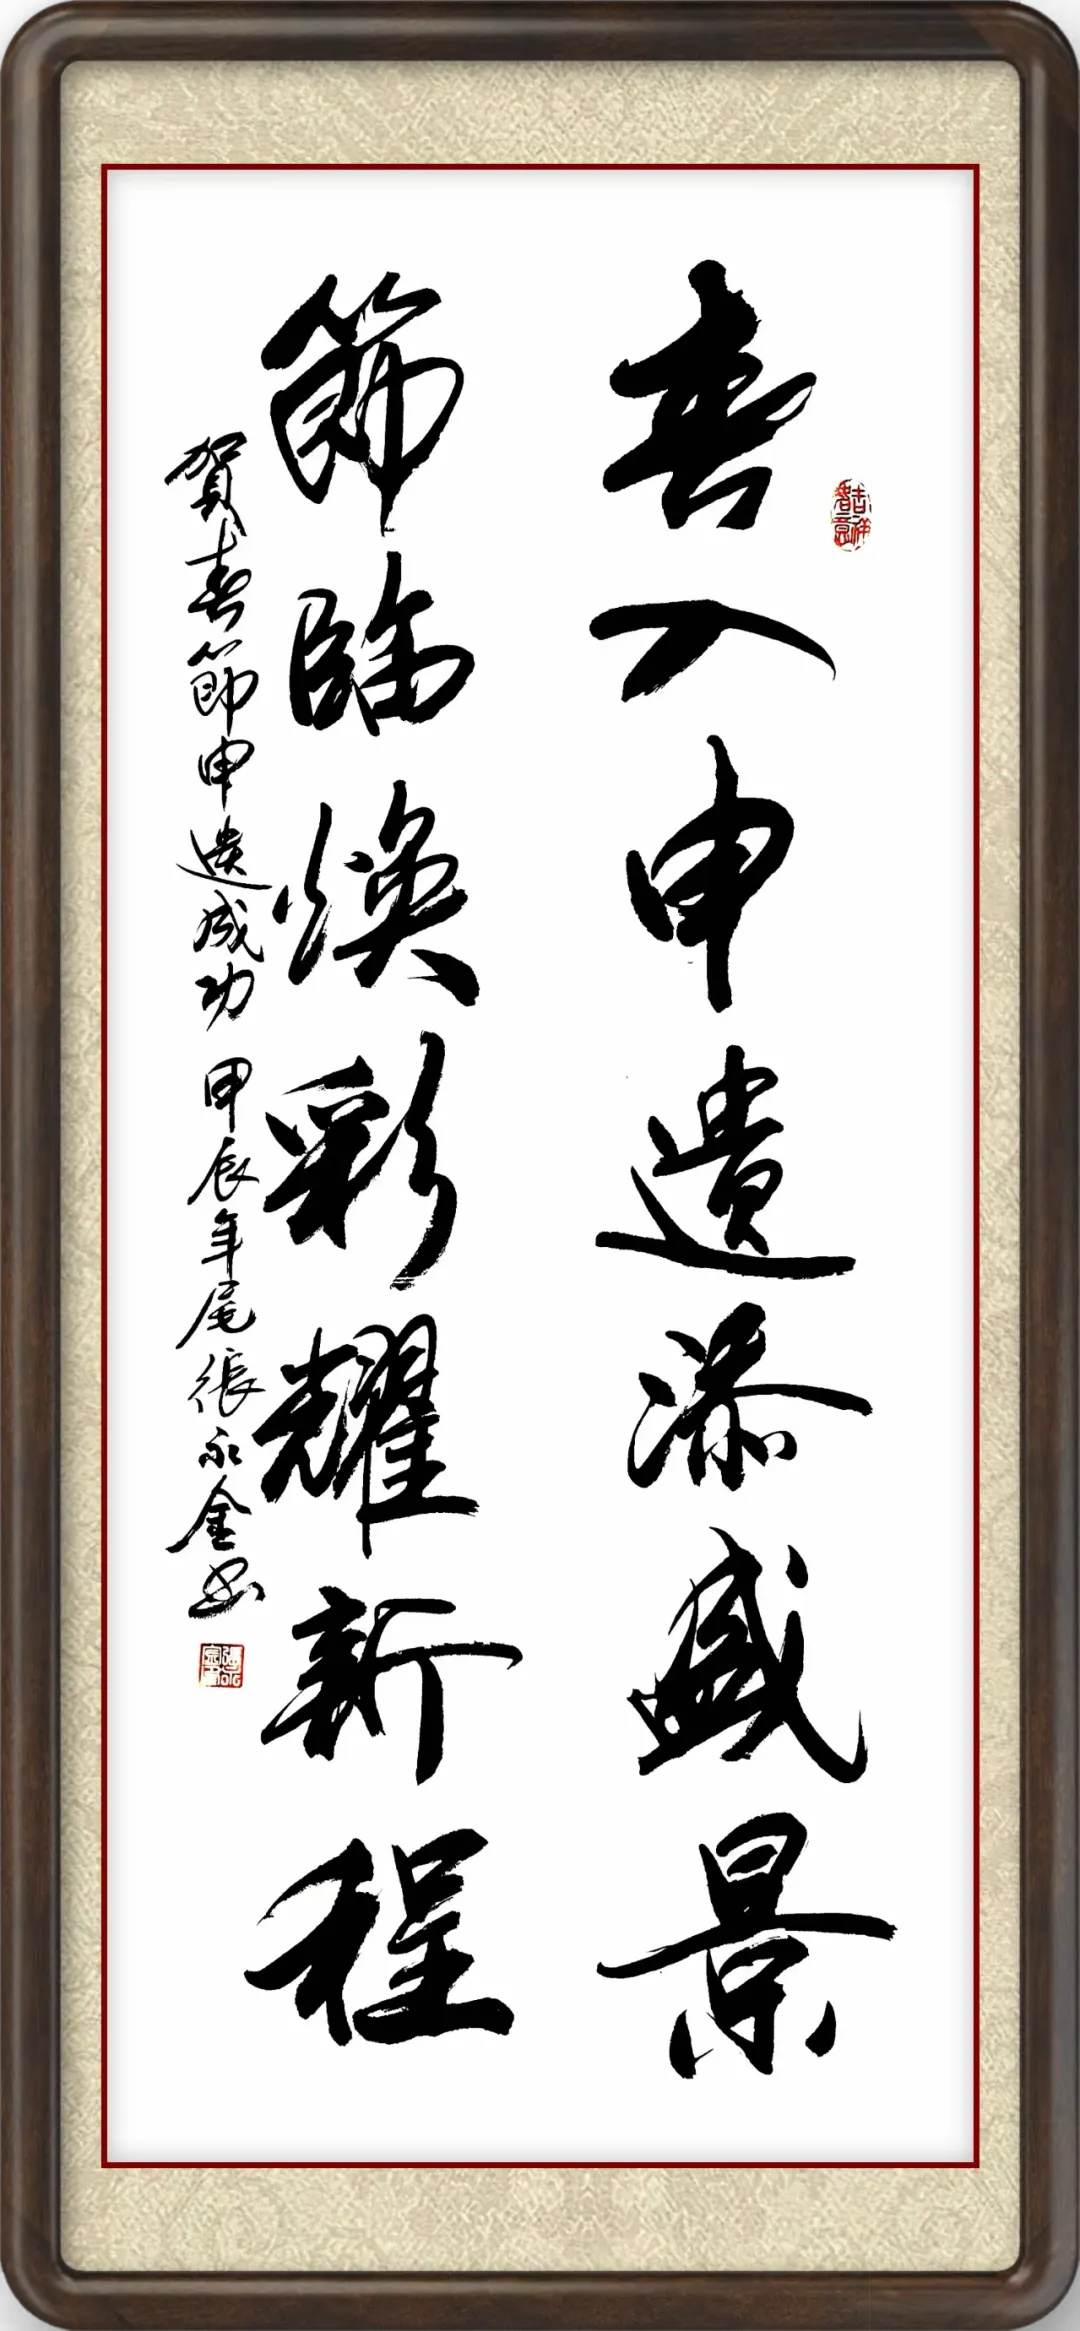 春入申遺添盛景
節臨煥彩耀新程
賀春節申遺成功 甲辰年尾張永金书
吉祥如意